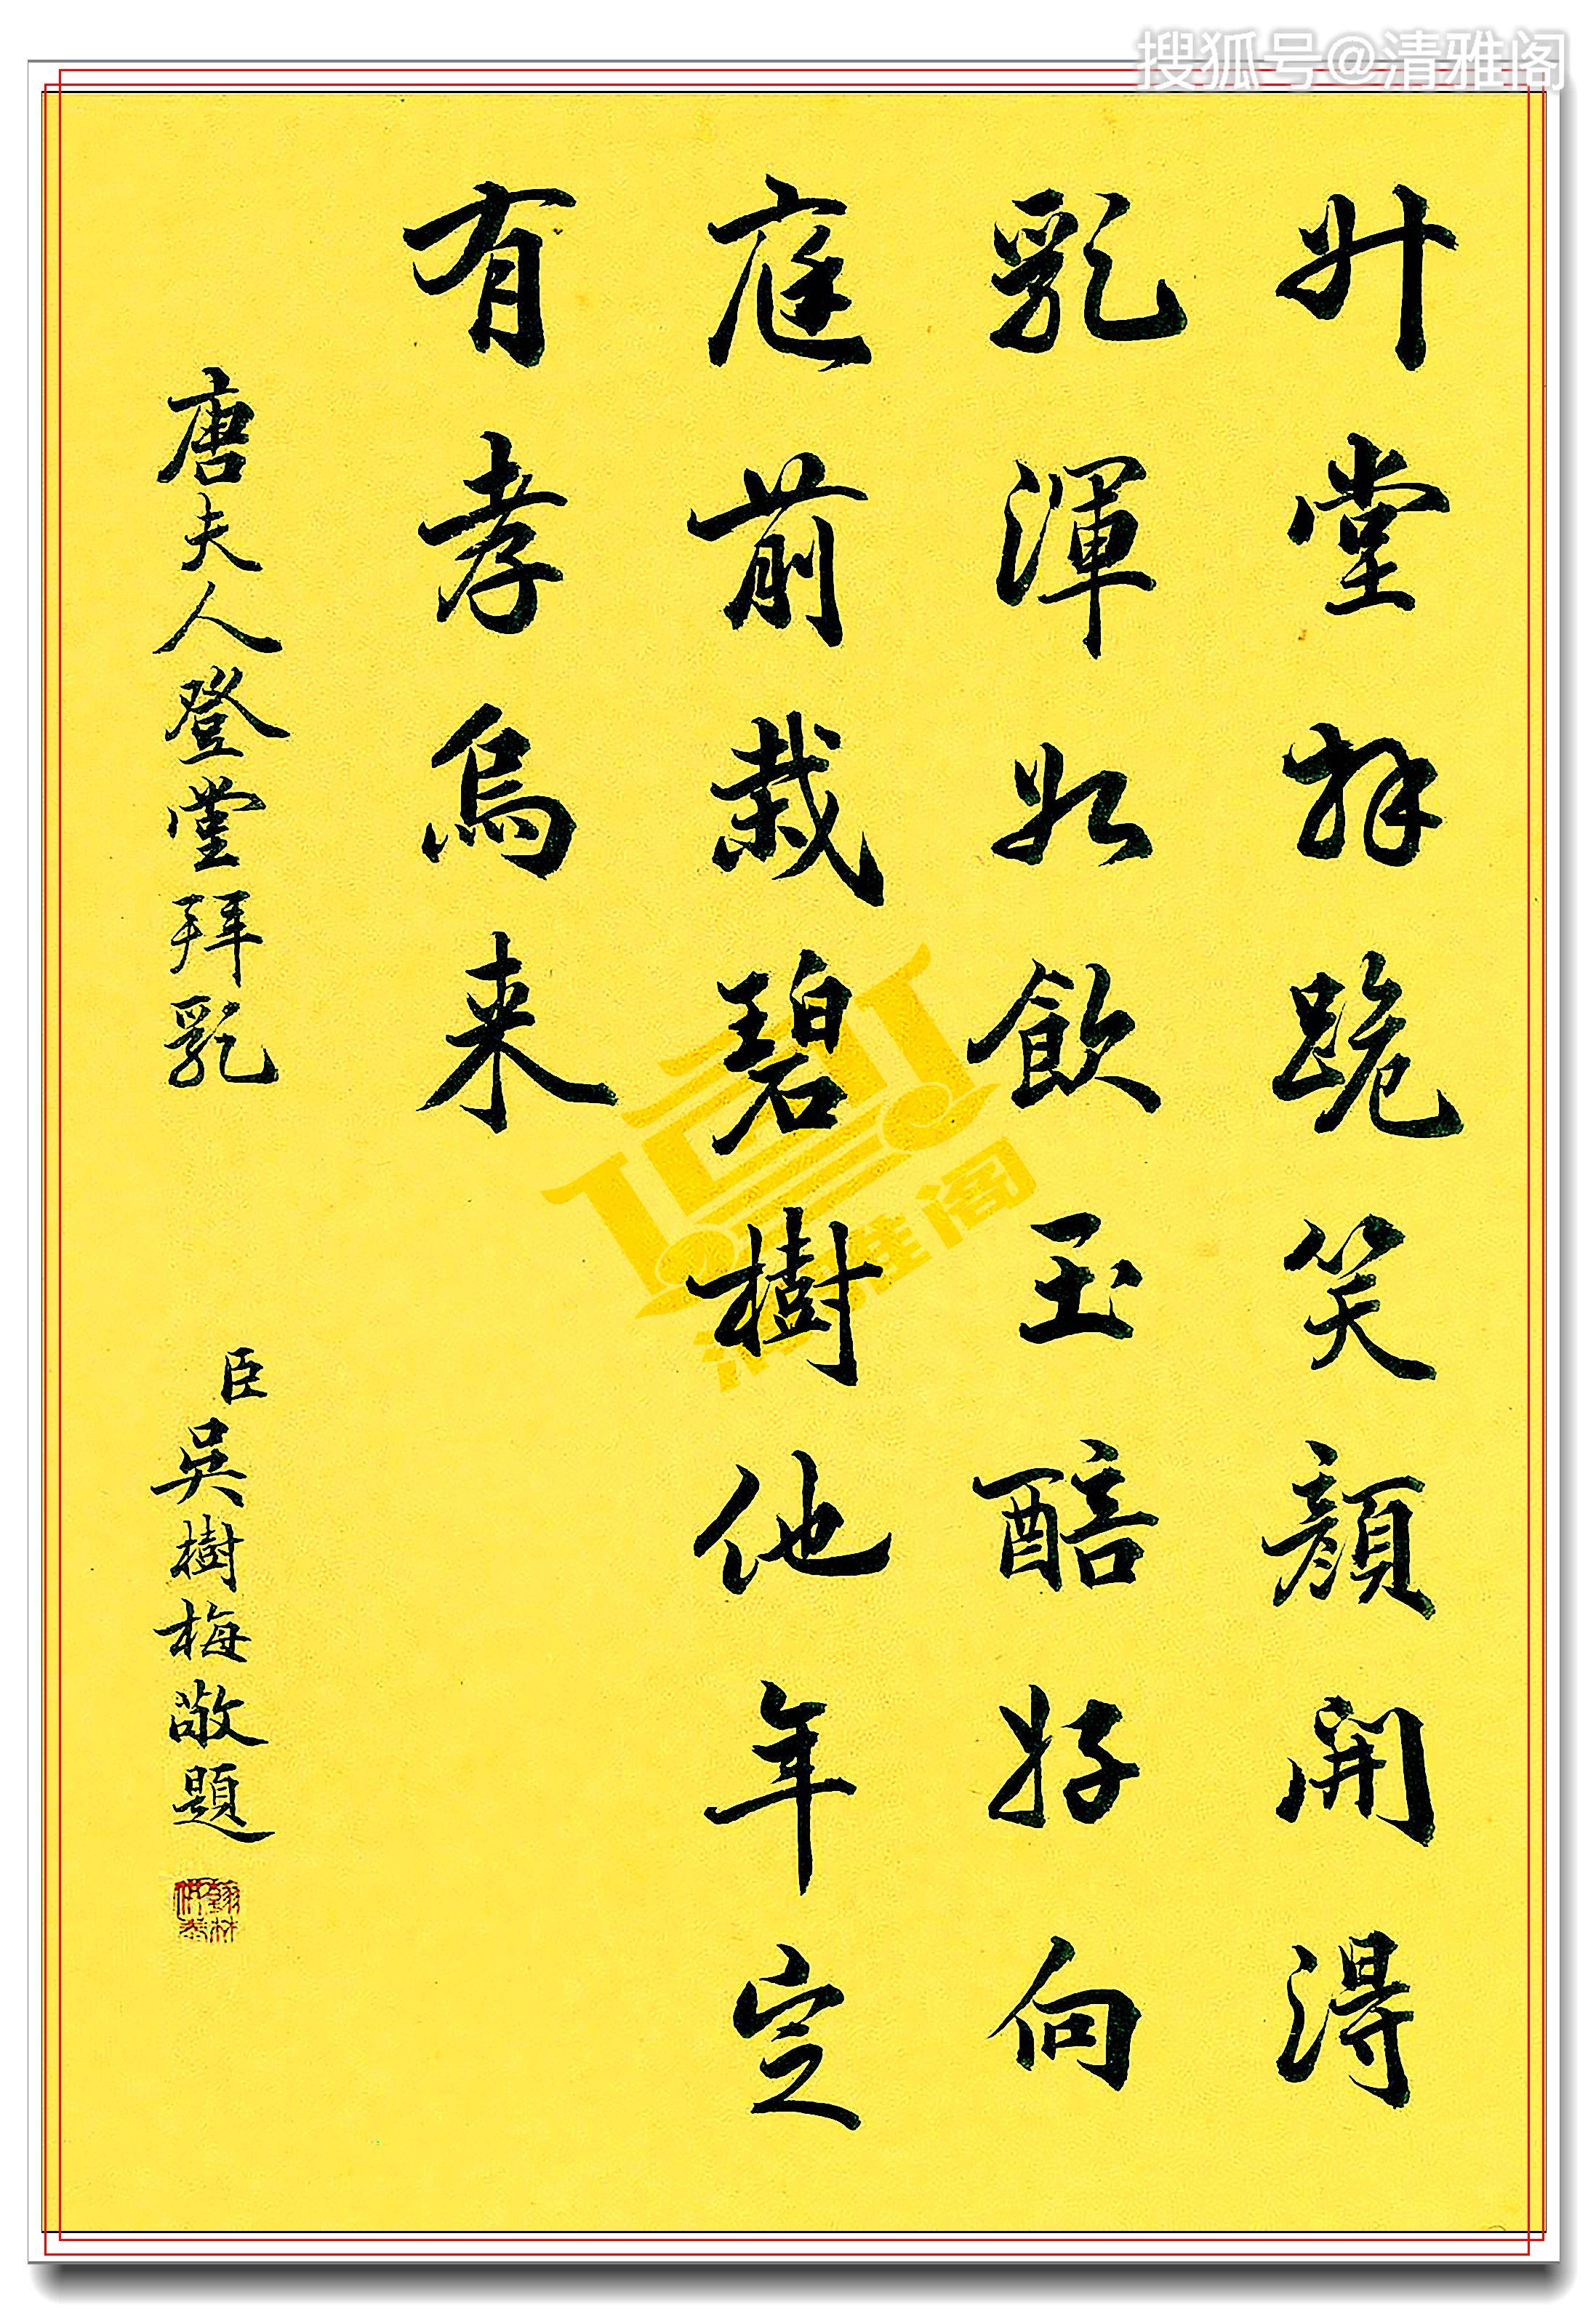 搜狐号@清雅阁
升堂拜跪笑顔開得
乳渾如飲玉醅好向
庭前栽碧樹他年定
有孝烏来
唐夫人登堂拜乳
臣吳樹梅敬題
翰林供奉
清雅阁